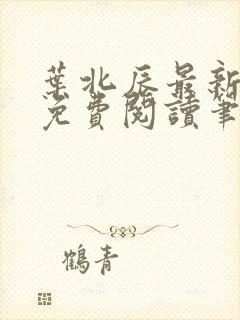 葉北辰最新
免費閱讀筆
鶴青